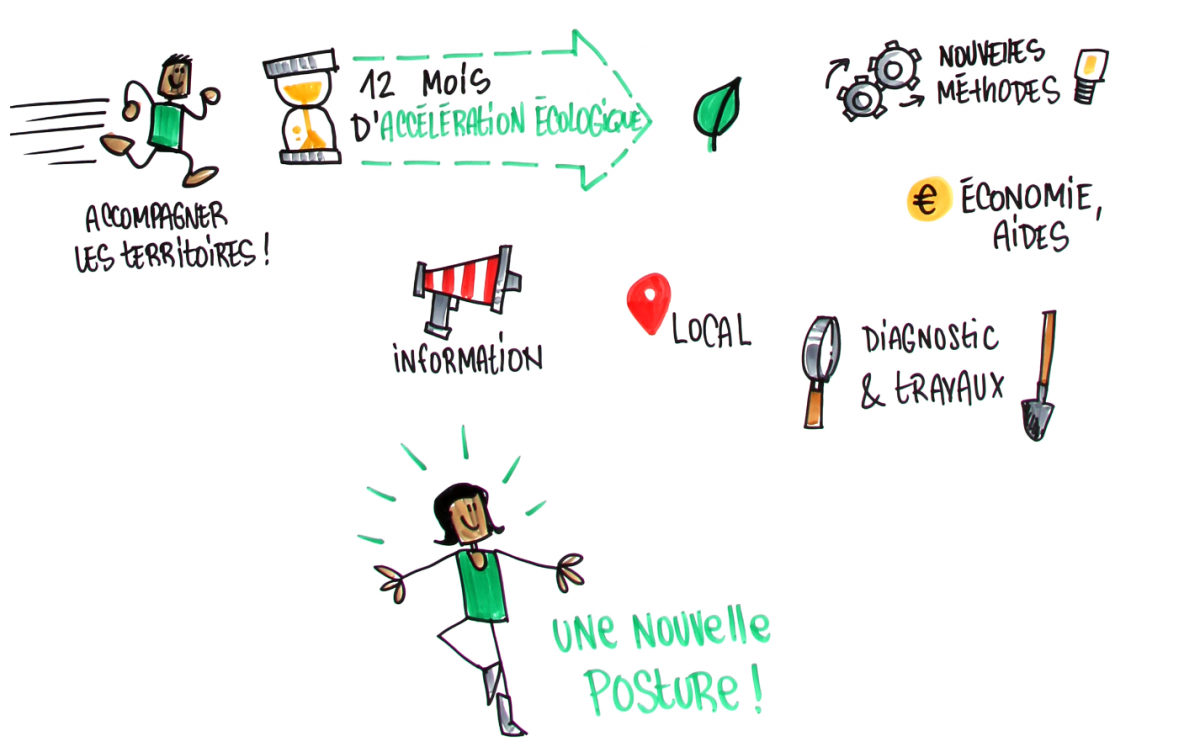 12 MOIS
D'ACCÉLÉRATION ÉCOLOGIQUE
ACCOMPAGNER
LES TERRITOIRES !
NOUVELLES
MÉTHODES
€ ÉCONOMIE,
AIDES
INFORMATION
LOCAL
DIAGNOSTIC
& TRAVAUX
UNE NOUVELLE
POSTURE !